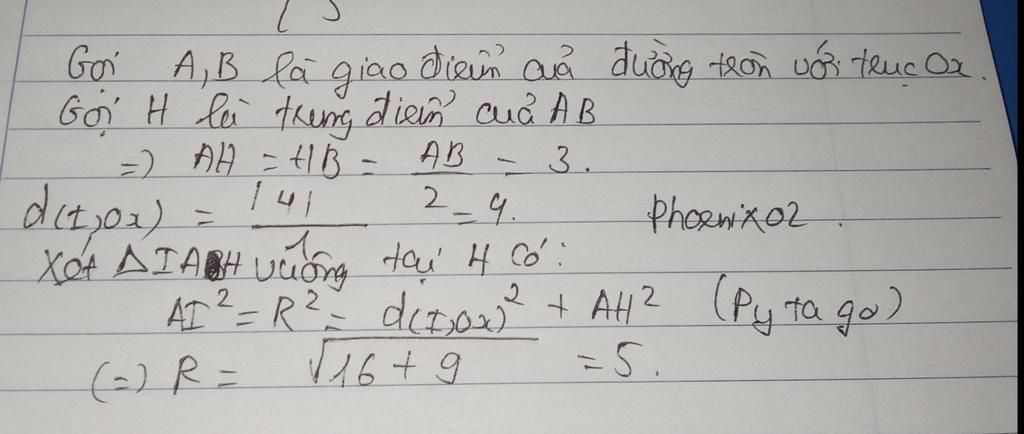 Gọi A,B là giao điểm của đường tròn với trục Ox.
Gọi H là trung điểm của AB
=) AH = HB = AB/2 = 3.
d(I,Ox) = |4|/1 = 4. Phoenix02.
Xét ΔIAH vuông tại H có:
AI² = R² = d(I,Ox)² + AH² (Pytago)
(=) R = √16 + 9 = 5.